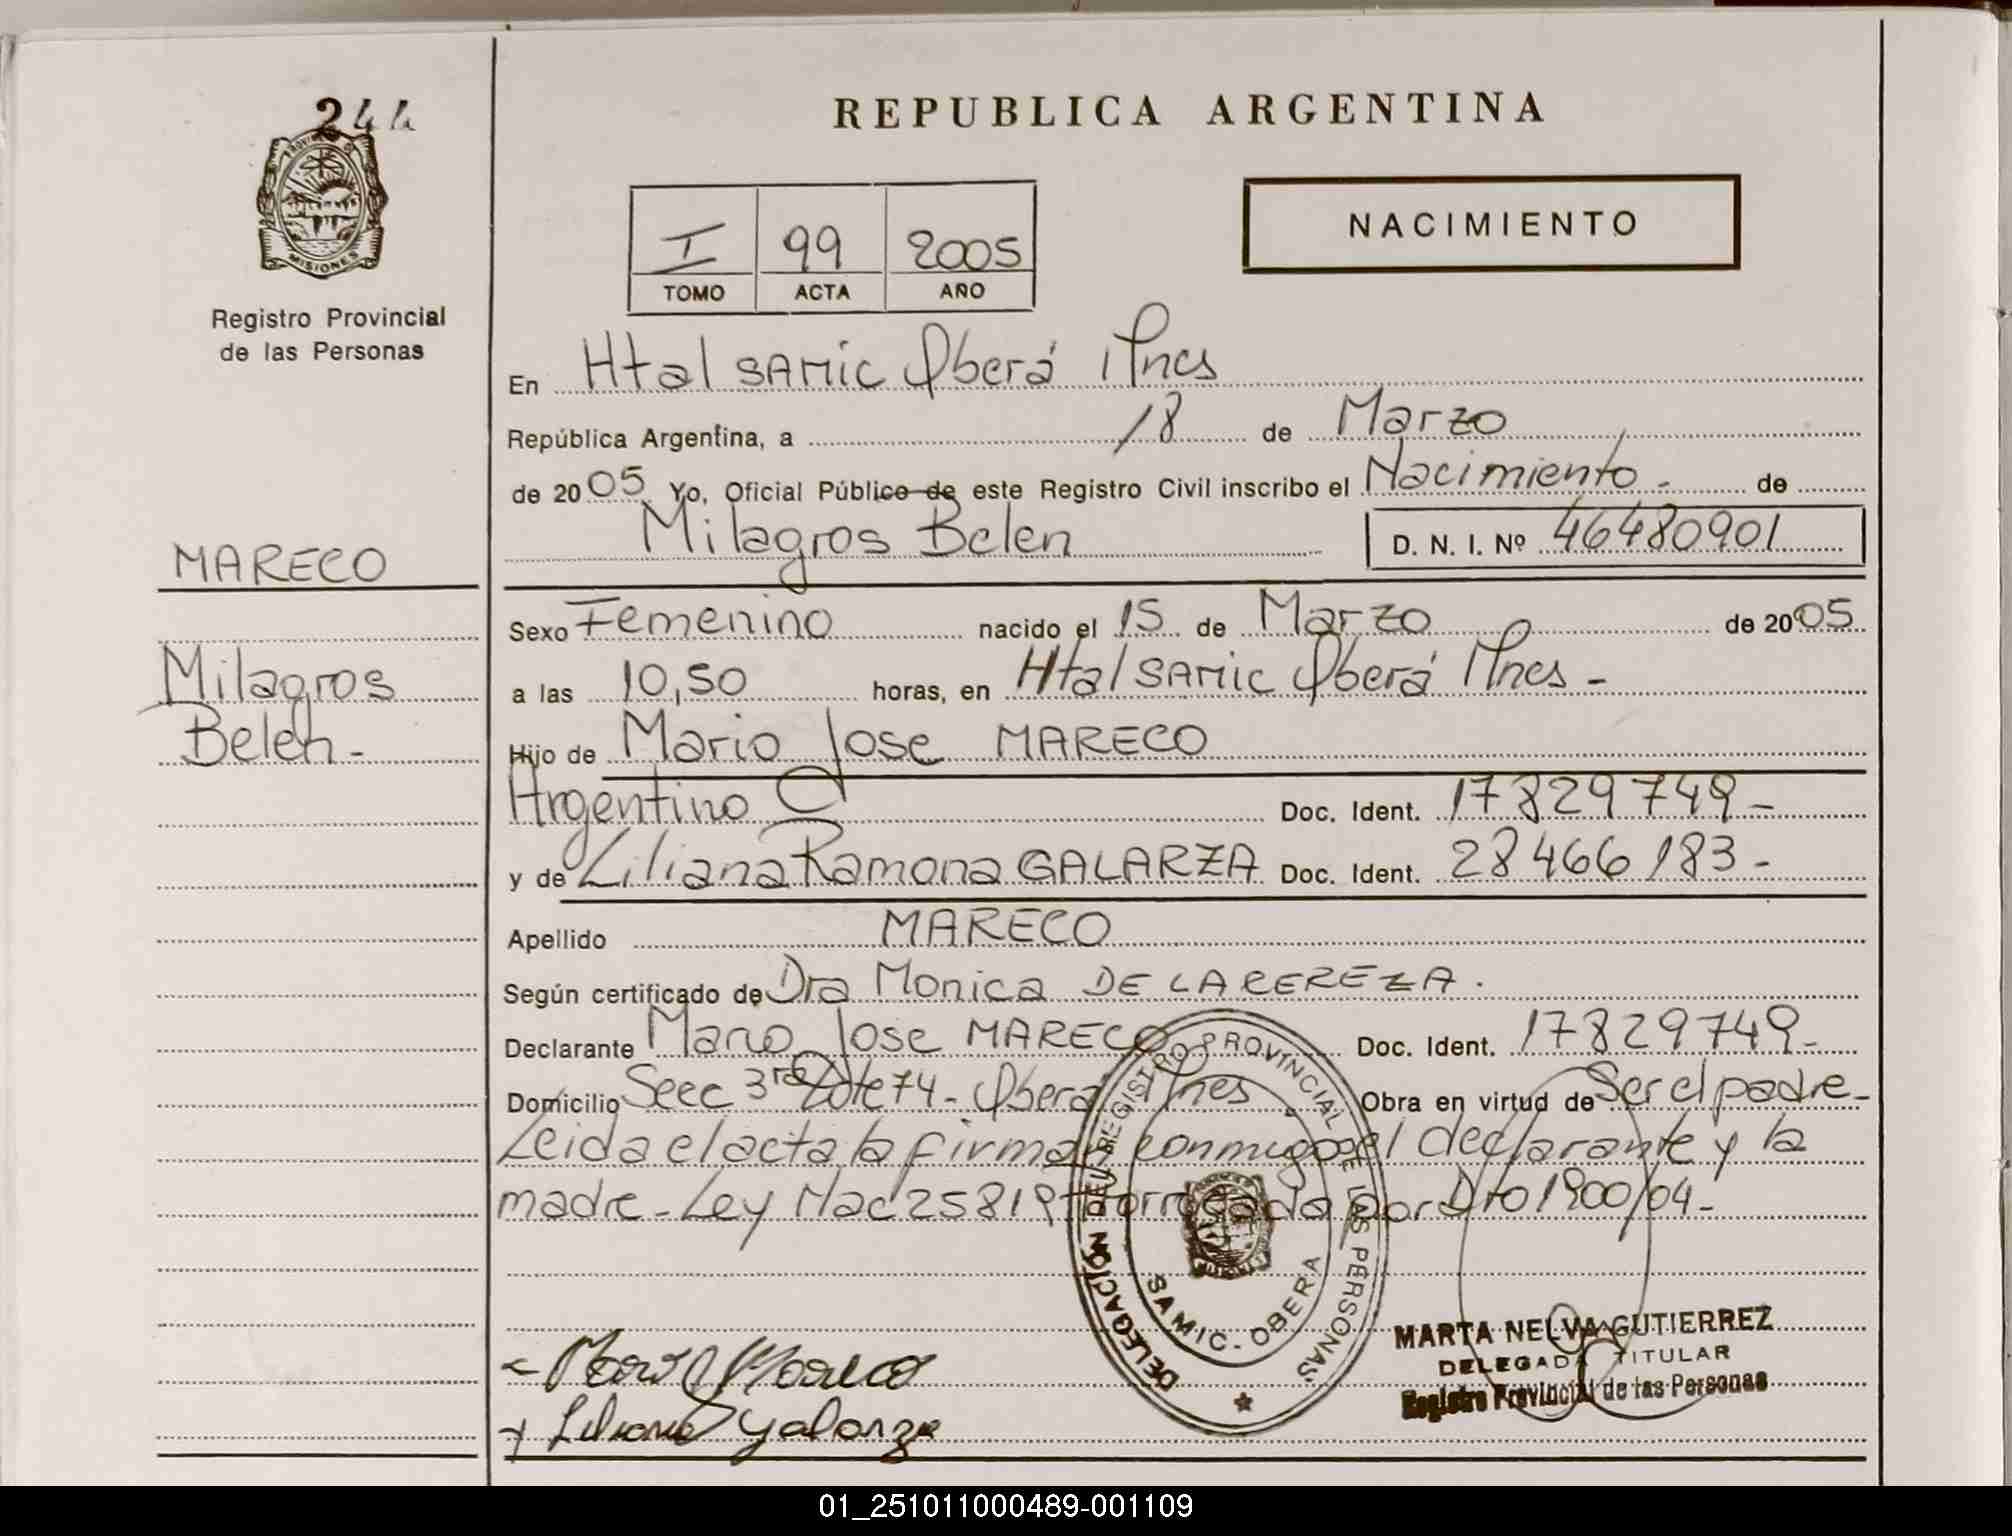 244
PROVINCIA DE
MISIONES
Registro Provincial
de las Personas
MARECO
Milagros
Belen-
REPUBLICA ARGENTINA
I 99 2005
TOMO ACTA AÑO
NACIMIENTO
En Htal SAMIC Oberá Mnes
República Argentina, a 18 de Marzo
de 2005 Yo, Oficial Público de este Registro Civil inscribo el Nacimiento - de
Milagros Belen D. N. I. Nº 46480901
Sexo Femenino nacido el 15 de Marzo de 2005
a las 10,50 horas, en Htal SAMIC Oberá Mnes -
Hijo de Mario Jose MARECO
Argentino Doc. Ident. 17829749-
y de Liliana Ramona GALARZA Doc. Ident. 28466183-
Apellido MARECO
Según certificado de Dra Monica DE LA
Declarante Mario Jose MARECO Doc. Ident. 17829749-
Domicilio Secc 3ra Lote 74- Oberá Mnes Obra en virtud de Ser el padre-
Leida el acta la firman conmigo el declarante y la
madre- Ley Nac 25819 Prorrogada por Dto 1900/04-
DELEGACIÓN DEL REGISTRO PROVINCIAL DE LAS PERSONAS
SAMIC. OBERA
Mario Mareco
Liliana galarza
MARTA NELVA GUTIERREZ
DELEGADA TITULAR
Registro Provincial de las Personas
01_251011000489-001109